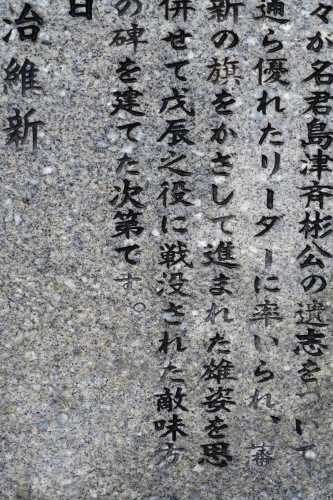 々が名君島津斉彬公の遺志をついで
通ら優れたリーダーに率いられ、審
新の旗をかざして進まれた雄姿を思
併せて戊辰之役に戦没された敵味方
の碑を建てた次第です。
日
治維新